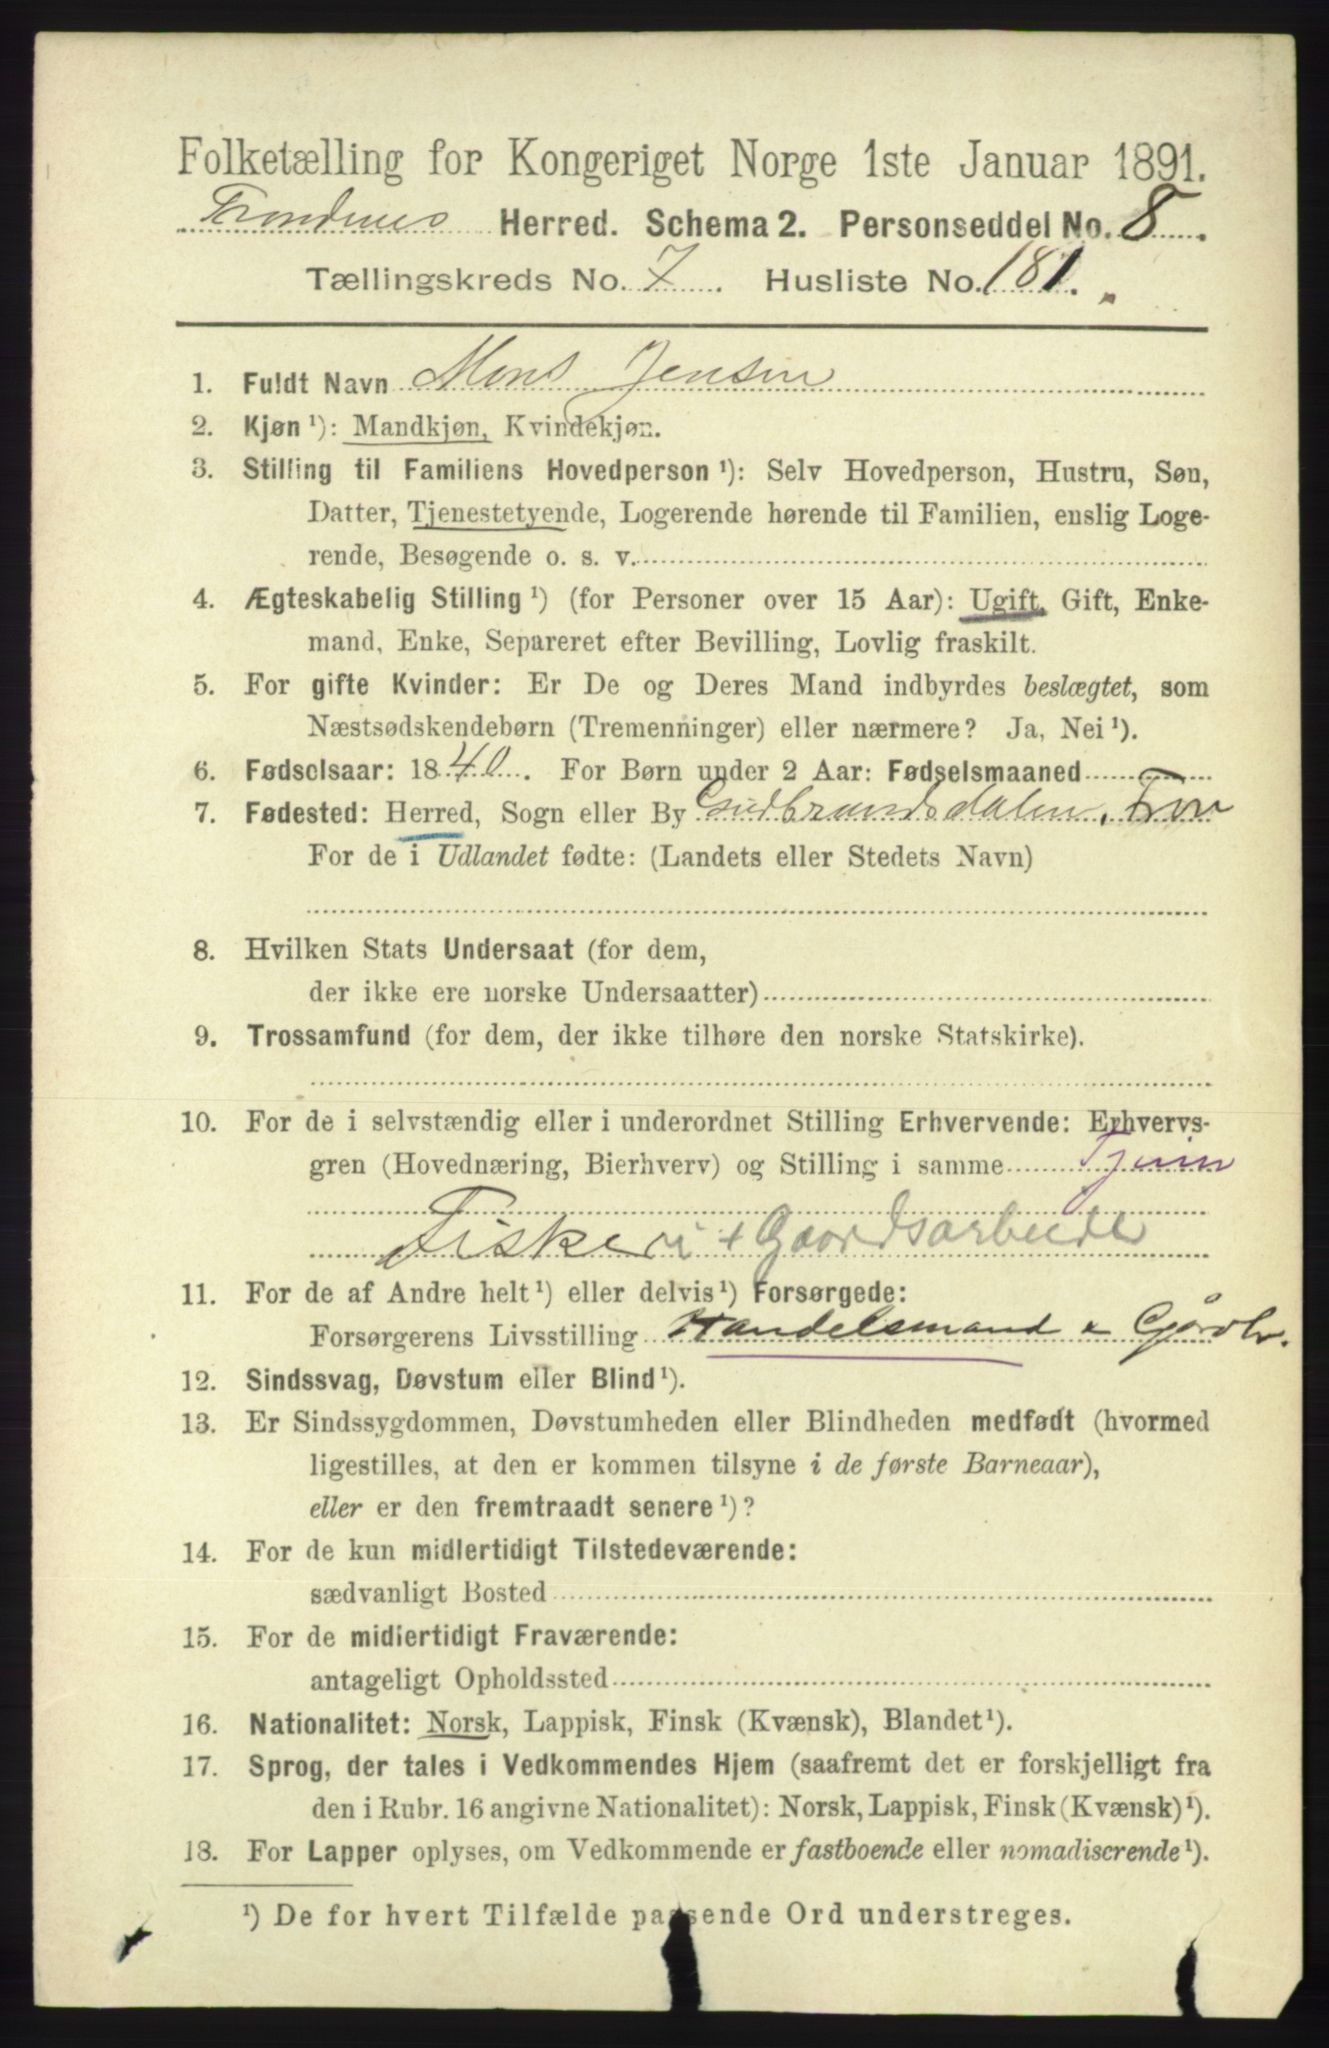 Folketælling for Kongeriget Norge 1ste Januar 1891.
Trondenes Herred. Schema 2. Personseddel No. 8
Tællingskreds No. 7. Husliste No. 181.
1. Fuldt Navn Mons Jensen
2. Kjøn ¹): Mandkjøn, Kvindekjøn.
3. Stilling til Familiens Hovedperson ¹): Selv Hovedperson, Hustru, Søn,
Datter, Tjenestetyende, Logerende hørende til Familien, enslig Loge-
rende, Besøgende o. s. v.
4. Ægteskabelig Stilling ¹) (for Personer over 15 Aar): Ugift, Gift, Enke-
mand, Enke, Separeret efter Bevilling, Lovlig fraskilt.
5. For gifte Kvinder: Er De og Deres Mand indbyrdes beslægtet, som
Næstsødskendebørn (Tremenninger) eller nærmere? Ja, Nei ¹).
6. Fødselsaar: 1840. For Børn under 2 Aar: Fødselsmaaned
7. Fødested: Herred, Sogn eller By Gudbrandsdalen, Fron
For de i Udlandet fødte: (Landets eller Stedets Navn)
8. Hvilken Stats Undersaat (for dem,
der ikke ere norske Undersaatter)
9. Trossamfund (for dem, der ikke tilhøre den norske Statskirke).
10. For de i selvstændig eller i underordnet Stilling Erhvervende: Erhvervs-
gren (Hovednæring, Bierhverv) og Stilling i samme
Fiskeri + Gaardsarbeide
11. For de af Andre helt ¹) eller delvis ¹) Forsørgede:
Forsørgerens Livsstilling Handelsmand &
12. Sindssvag, Døvstum eller Blind ¹).
13. Er Sindssygdommen, Døvstumheden eller Blindheden medfødt (hvormed
ligestilles, at den er kommen tilsyne i de første Barneaar),
eller er den fremtraadt senere ¹)?
14. For de kun midlertidigt Tilstedeværende:
sædvanligt Bosted
15. For de midlertidigt Fraværende:
antageligt Opholdssted
16. Nationalitet: Norsk, Lappisk, Finsk (Kvænsk), Blandet ¹).
17. Sprog, der tales i Vedkommendes Hjem (saafremt det er forskjelligt fra
den i Rubr. 16 angivne Nationalitet): Norsk, Lappisk, Finsk (Kvænsk) ¹).
18. For Lapper oplyses, om Vedkommende er fastboende eller nomadiserende ¹).
¹) De for hvert Tilfælde passende Ord understreges.